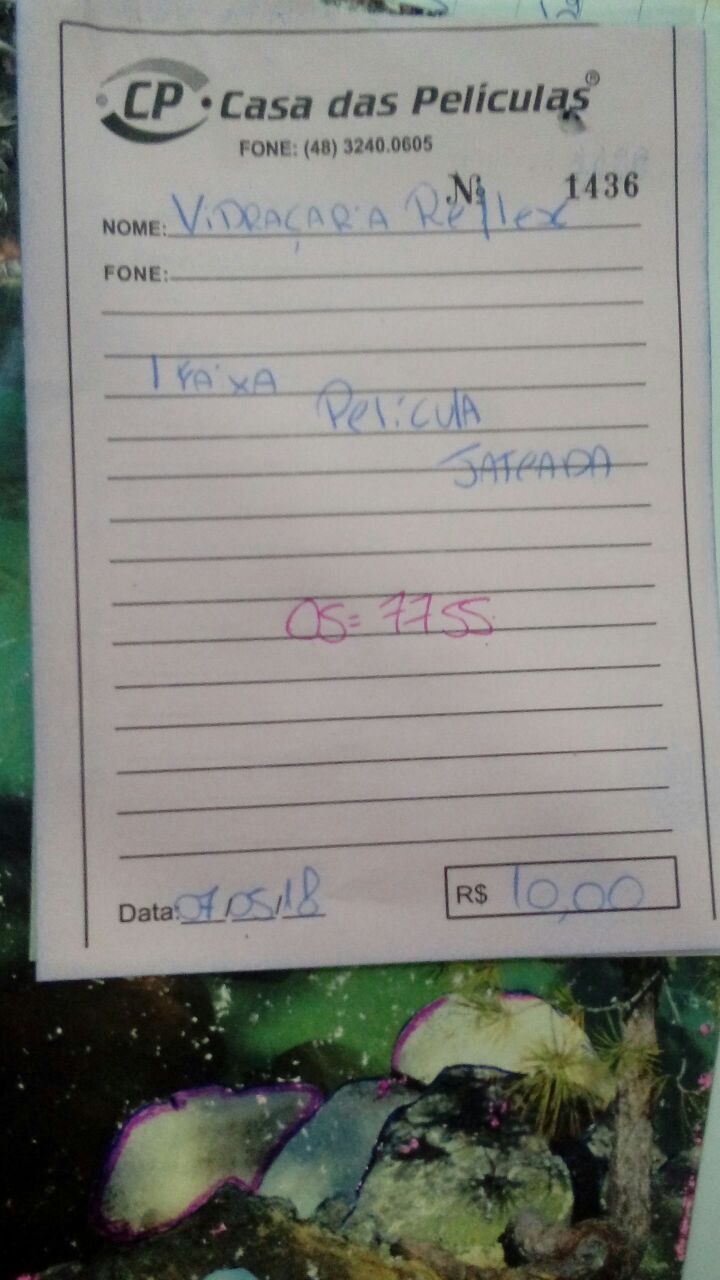 CP • Casa das Películas®
FONE: (48) 3240.0605
Nº 1436
NOME: ViDRAÇARiA Reflex
FONE:
1 FAiXA
PelículA
JATeADA
OS= 7755
Data: 07/05/18
R$ 10,00